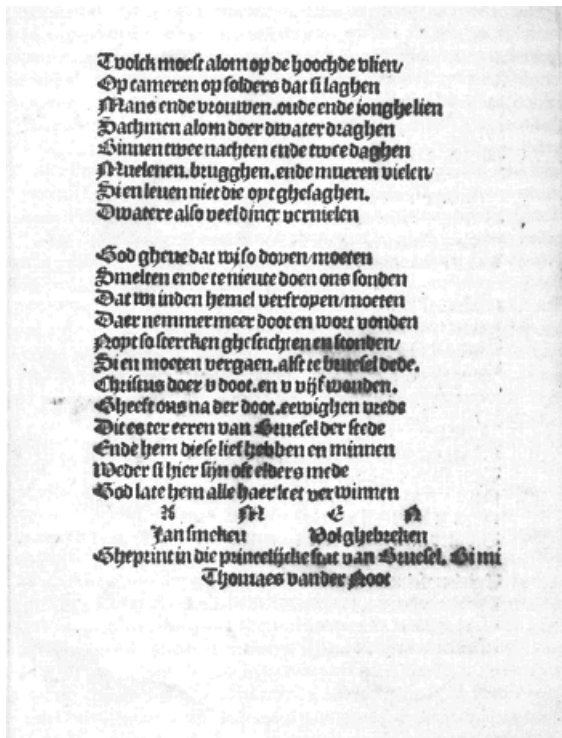 Tvolck moest alom op de hoochde vlien/
Op cameren op solders dat si laghen
Mans ende vrouwen. oude ende ionghe lien
Sachmen alom doer dwater draghen
Binnen twee nachten ende twee daghen
Muelenen. brugghen. ende mueren vielen/
Sien leuen niet die oyt ghesaghen.
Dwatere also veel dincx vernielen
God gheue dat wi so doyen/moeten
Smelten ende te nieute doen ons sonden
Dat wi inden hemel verfroyen/moeten
Daer nemmermeer doot en wort vonden
Noyt so stercken ghestichten en stonden/
Si en moeten vergaen. alst te bruesel dede.
Christus doer v doot. en v vijf wonden.
Gheeft ons na der doot. eewighen vrede
Dit es ter eeren van Bruesel der stede
Ende hem diese lief hebben en minnen
Weder si hier sijn oft elders mede
God late hem alle haer leet verwinnen
A M E N
Jan smeken Volghebreken
Gheprint in die princelijcke stat van Bruesel. Bi mi
Thomaes vander Noot